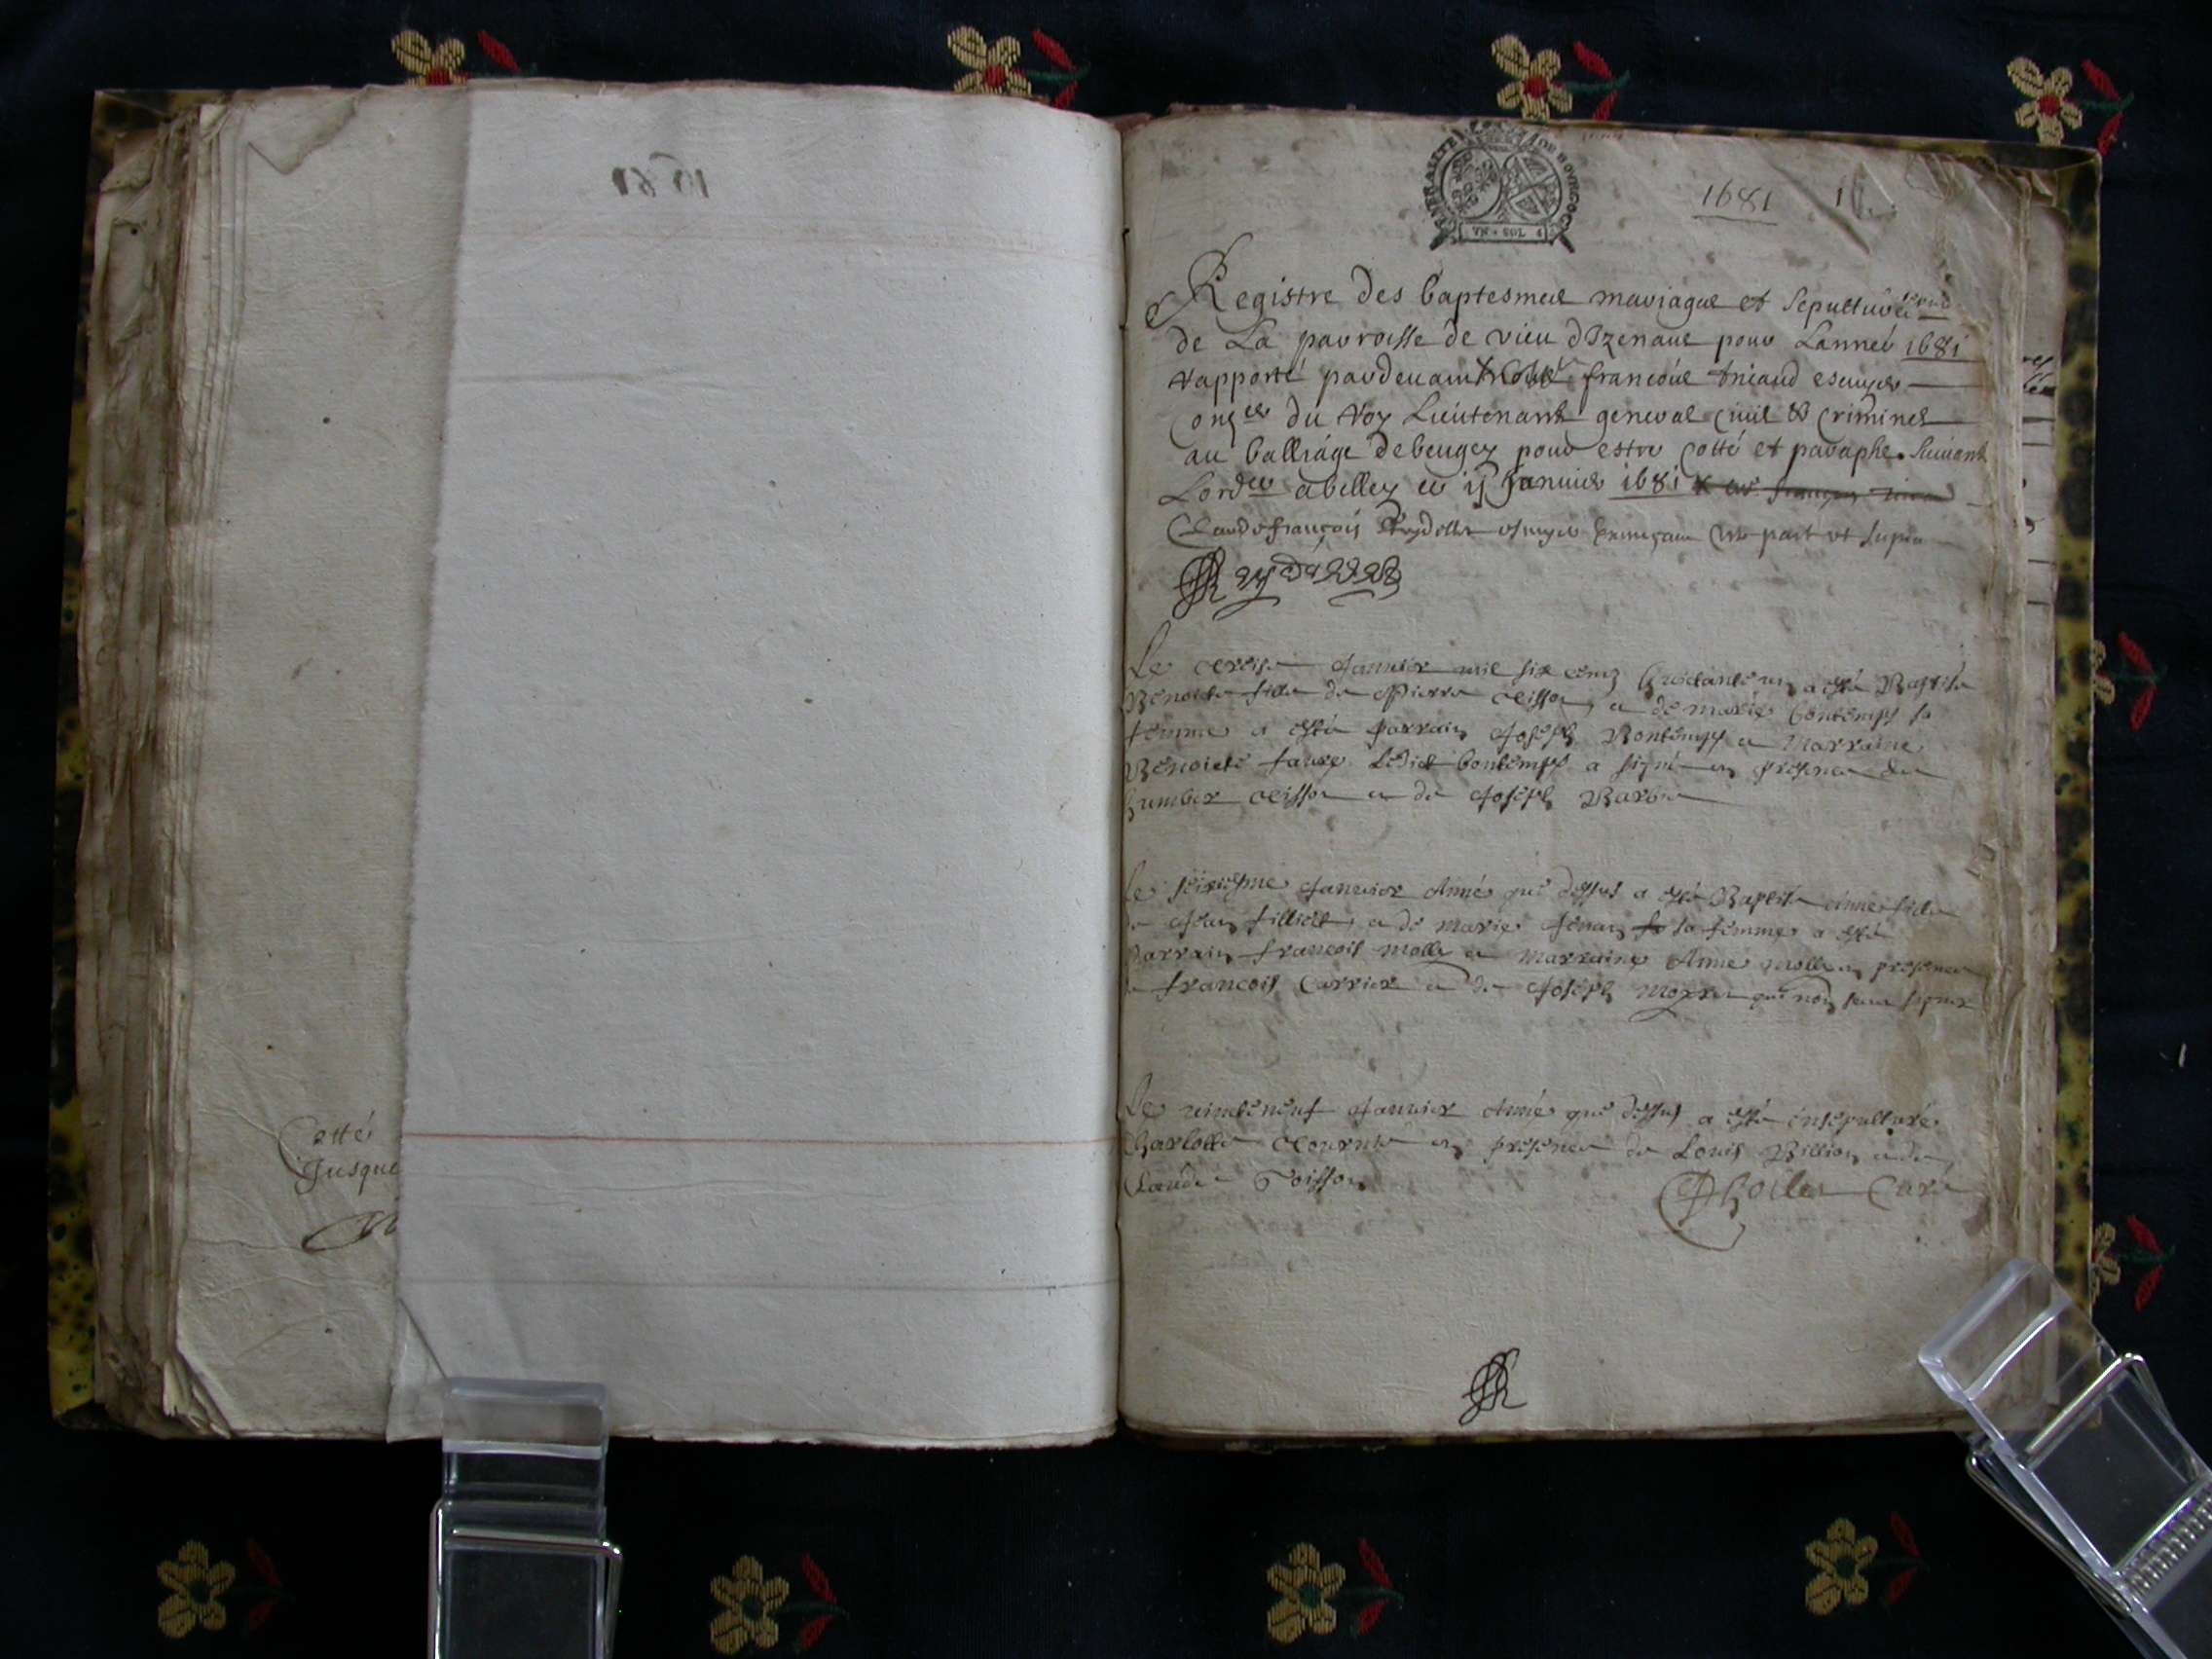 Cotté
Jusque
GENERALITE DE BOVRGOGNE
VN SOL 4
1681
Registre des baptesmes mariages et sepultures
de La parroisse de vieu dIzenaue pour Lanneé 1681
rapporté pardeuant francois escuyer
Conser du Roy Lieutenant general ciuil & criminel
au balliage de beugey pour estre cotté et paraphe suiuant
Lordce a belley ce Januier 1681
Claude françois Reydellet escuyer part et supra
Reydellet
Le Januier mil six cens huictante un a esté Baptisé
Benoiste fille de Pierre et de marie bontemps sa
femme a esté parrain Joseph Bontemps et Marraine
Benoiste faure Ledict bontemps a signé en presence de
humber et de Joseph Barbier
Le seiziesme Januier Anné que dessus a esté Baptisé Anne fille
de Jean filliet et de marie sa femme a esté
parrain francois molle et marraine Anne molle en presence
de francois Carrier et de Joseph que nont sceu signer
Le vinteneuf Januier Anné que dessus a esté ensepulturé
Charlotte en presence de Louis Billion et de
Claude Poisson
Curé